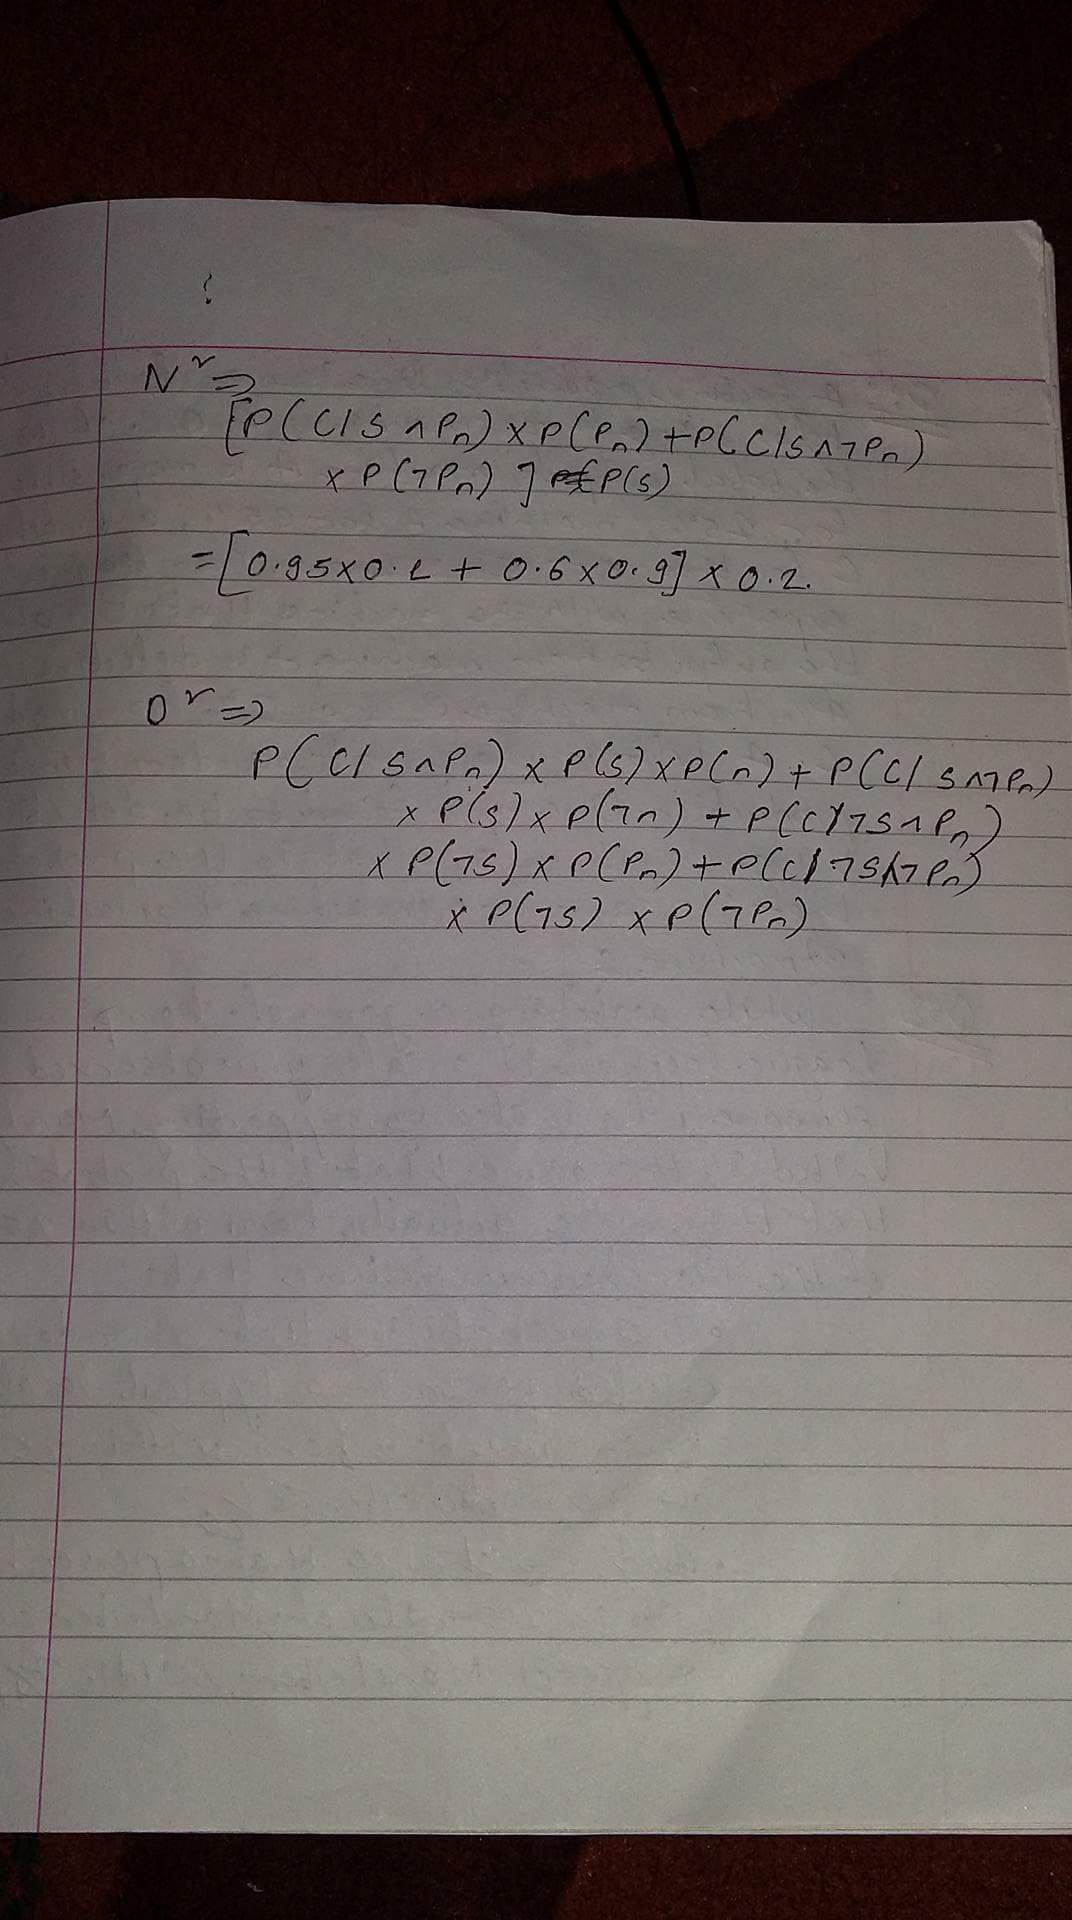 Nʳ ⇒
[P(C/S ∧ Pn) × P(Pn) + P(C/S ∧ ¬Pn)
× P(¬Pn) ] P(S)
= [0.95 × 0.1 + 0.6 × 0.9] × 0.2.
Dʳ ⇒
P(C/S ∧ Pn) × P(S) × P(n) + P(C/S ∧ ¬Pn)
× P(S) × P(¬n) + P(C/¬S ∧ Pn)
× P(¬S) × P(Pn) + P(C/¬S ∧ ¬Pn)
× P(¬S) × P(¬Pn)